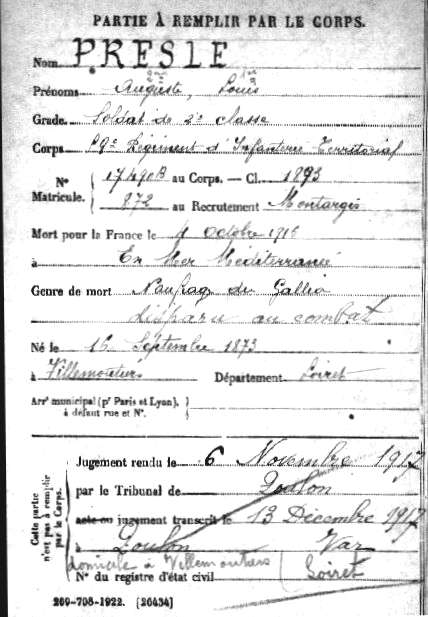 PARTIE À REMPLIR PAR LE CORPS.
Nom PRESLE
Prénoms Auguste, Louis
Grade Soldat de 2e classe
Corps 89e Régiment d'Infanterie Territorial
N° 17490B au Corps. — Cl. 1893
Matricule. 872 au Recrutement Montargis
Mort pour la France le 4 Octobre 1916
à En Mer Méditerranée
Genre de mort Naufrage du Gallia
disparu au combat
Né le 15 Septembre 1873
à Villemoutiers Département Loiret
Arrt municipal (pr Paris et Lyon),
à défaut rue et N°.
Cette partie n'est pas à remplir par le Corps.
Jugement rendu le 6 Novembre 1917
par le Tribunal de Toulon
acte ou jugement transcrit le 13 Décembre 1917
à Toulon Var
domicile à Villemoutiers Loiret
N° du registre d'état civil
269-708-1922. [26434]